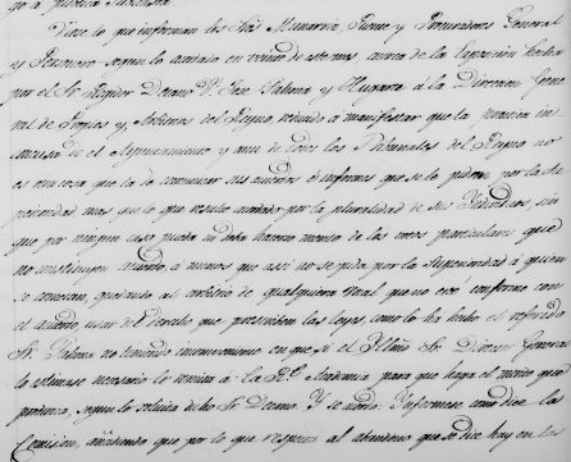 go á
Viose lo que informan los Sres Munarriz, Puente y Procuradores General
y Personero segun lo acordado en veinte de este mes, acerca de la Exposicion hecha
por el Sr Regidor Decano Dn Jose Palma y Hugarte á la Direccion Gene
ral de Propios y Arbitrios del Reyno, reducido á manifestar que la practica in
concusa de el Ayuntamiento y aun de todos los Tribunales del Reyno no
es otra cosa que la de comunicar sus acuerdos ó informes que se le piden por la Su
perioridad mas que lo que resulta acordado por la pluralidad de sus Individuos, sin
que por ningun caso pueda ni deba hacerse mencion de los votos particulares que
no constituyen acuerdo, á menos que assi no se pida por la Superioridad á quien
, quedando al arbitrio de qualquiera Vocal que no este conforme con
el acuerdo, usar de el derecho que prescriben las leyes, como lo ha hecho el referido
Sr Palma no teniendo inconveniente en que si el Yllmo Sr Director General
lo estimase necesario lo remita á la Rl Academia para que haga el merito que
produzca, segun lo solicita dicho Sr Decano. Y se acordó: Ynformese como dice la
Comision, añadiendo que por lo que respecta al abandono que se dice hay en los